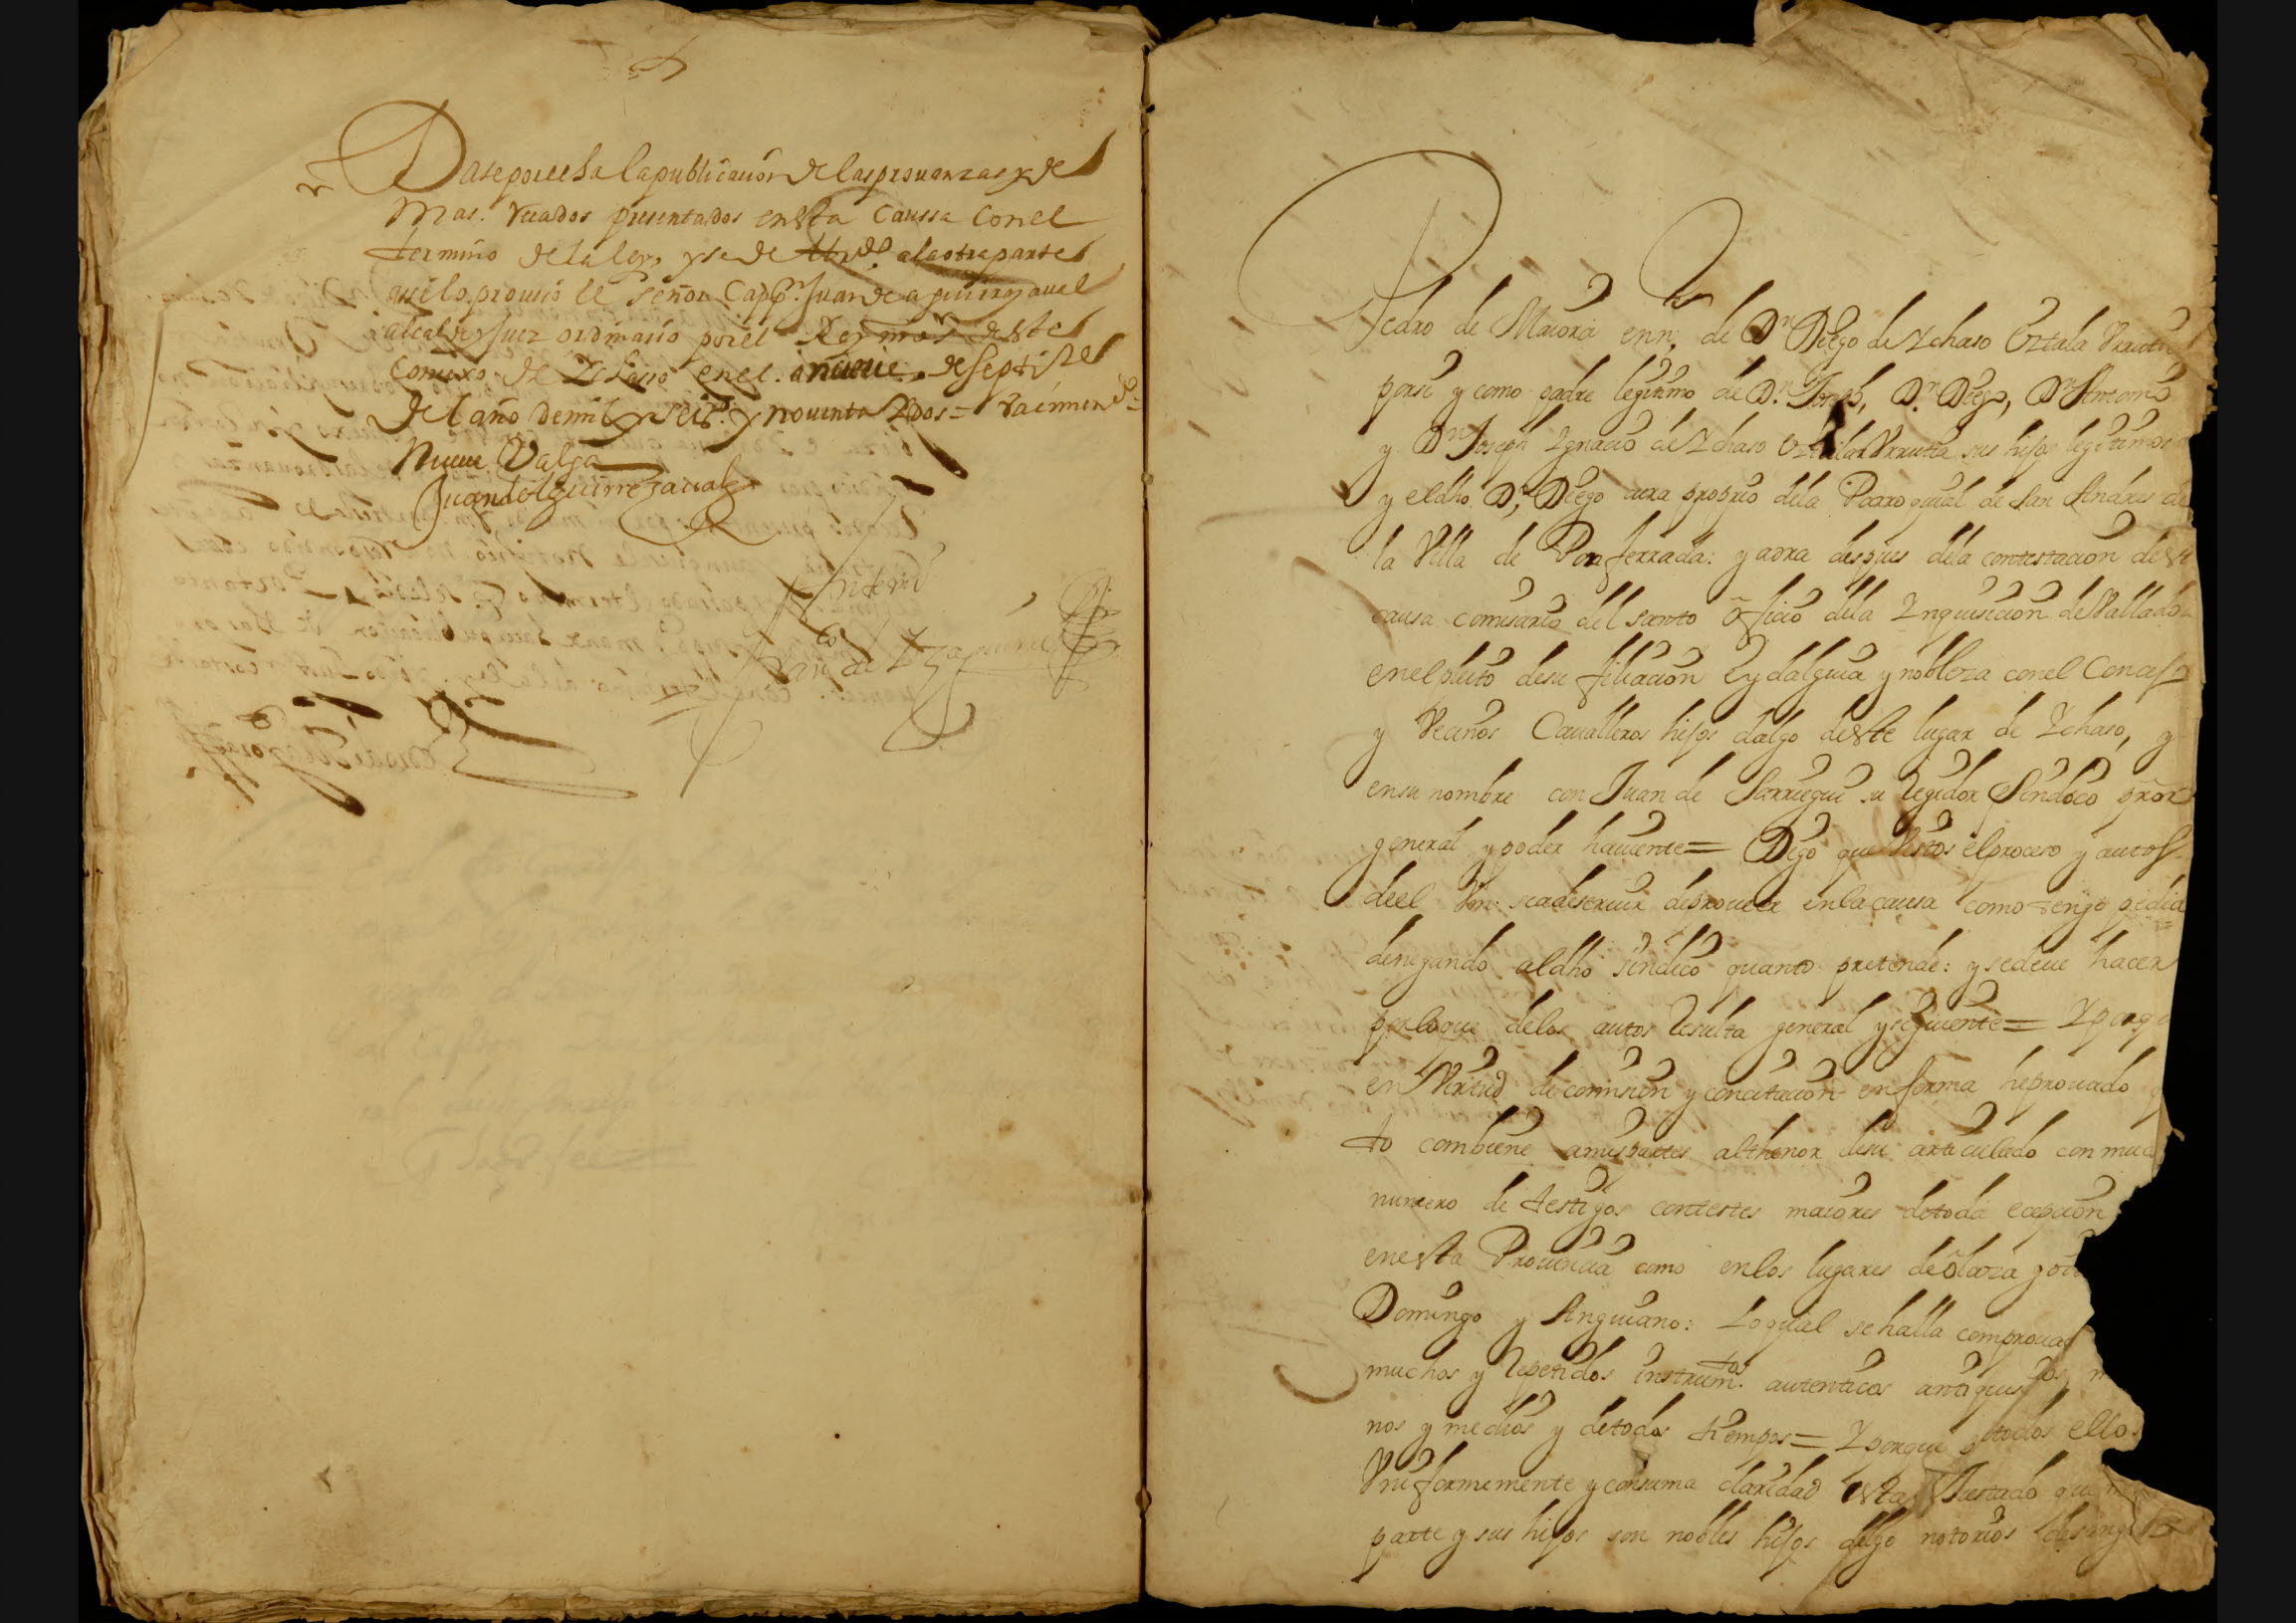 Dase por echa la publicaçion de las prouanzas y de
mas. recados presentados en esta Caussa Con el
termino de la ley, y se de a la otra parte
assi lo proueio el señor Capp.n Juan de aguirrezaual
alcalde y Juez ordinario por el Rey nro s.r deste
Conçexo de Ychasso en el. a nueue de Septi.re
del año de mil y seis.s y nouenta y dos =
Nueue Valga
Juan de Aguirrezaual
Ante mi
Fran.co de
Pedro de Maiora en n.e de D.n Diego de Ychaso Oztala Vrrutia
por si y como padre legitimo de D.n D.n Diego, D.n Antonio
y D.n Joseph Ygnacio de Ychaso Vrrutia sus hijos legitimos
y el dho D.n Diego cura proprio dela Parroquial de San Andres de
la Villa de Ponferrada: y aora despues dela contestacion desta
causa comisario del santo oficio dela Ynquisicion de Vallado
en el pleito de su filiacion Hydalguia y nobleza con el Concejo
y Vecinos Caualleros hijos dalgo deste lugar de Ychaso, y
en su nombre con Juan de Sarriegui su regidor Sindico pror
general y poder hauiente = Digo que Vistos el proceso y autos
de el Vm. sea de seruir de proueer en la causa como tengo pedido
denegando al dho sindico quanto pretende: y se deue hacer
por lo que delos autos resulta general y siguiente = Y porq
en Virtud de comision y con citacion en forma he prouado q
to combiene a mis partes al thenor de su articulado con muc
numero de testigos contestes maiores de toda ecepcion
en esta Prouincia como en los lugares de
Domingo y Anguiano: Lo qual se halla comprouad
muchos y repetidos instrum.tos autenticos antiguis
nos y medios y de todos tiempos = Y porque todos ellos
Vniformemente y con suma claridad esta que
parte y sus hijos son nobles hijos dalgo notorios de sangre